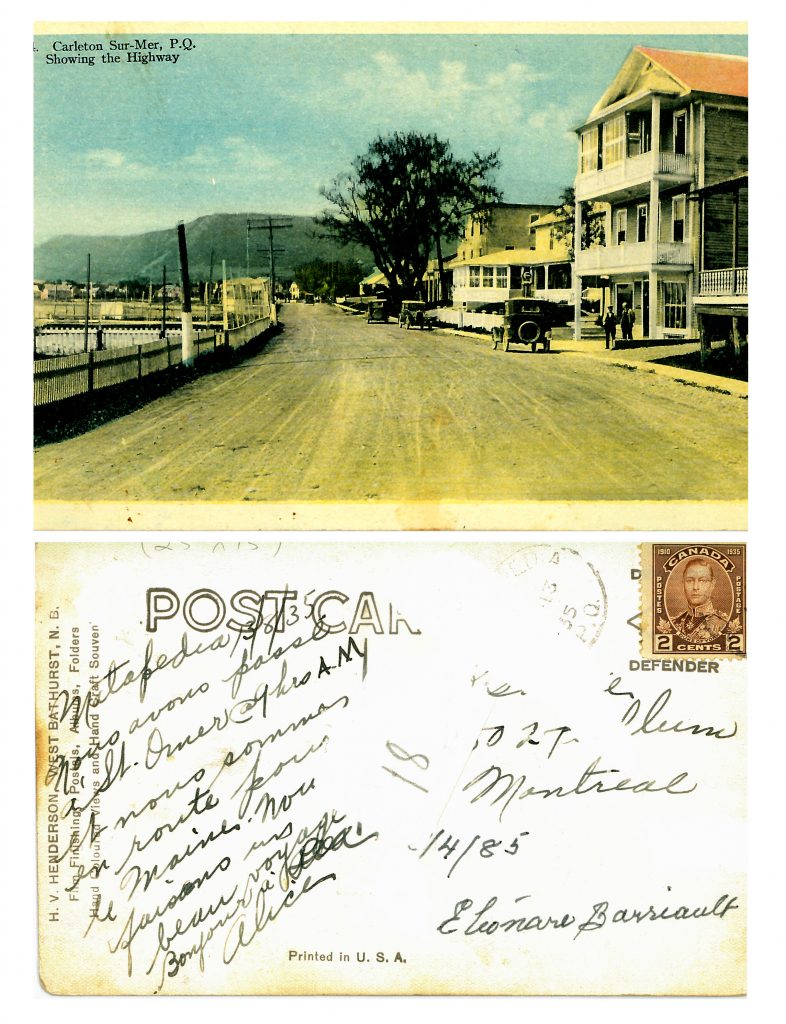 Carleton Sur-Mer, P.Q.
Showing the Highway
POST CAR
H. V. HENDERSON, WEST BATHURST, N. B.
Film Finishing, Postals, Albums, Folders
Hand Coloured Views and Hand Craft Souven
Matapedia 13/8/35
Nous avons passé
à St. Omer @ 9 hrs A.M
et nous sommes
en route pour
le Maine. Nou
faisons un
beau voyage
Bonjour à
Alice
18
P.Q.
35
1910 1935
CANADA
POSTES POSTAGE
2 CENTS 2
DEFENDER
Plum
Montreal
14/85
Eléonare Barriault
Printed in U. S. A.